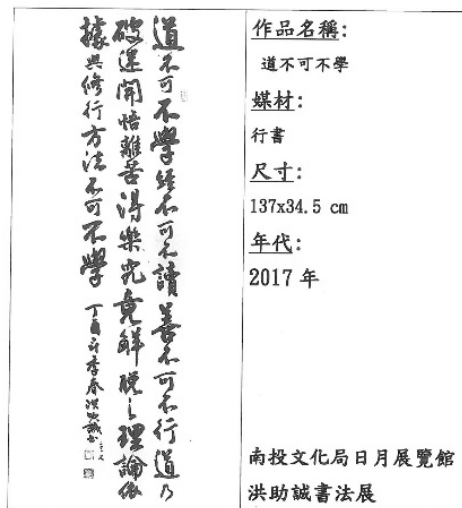 道不可不學經不可不讀善不可不行道乃
破迷開悟離苦得樂究竟解脫之理論依
據與修行方法不可不學
丁酉年季春洪助誠書
作品名稱:
道不可不學
媒材:
行書
尺寸:
137x34.5 cm
年代:
2017 年
南投文化局日月展覽館
洪助誠書法展